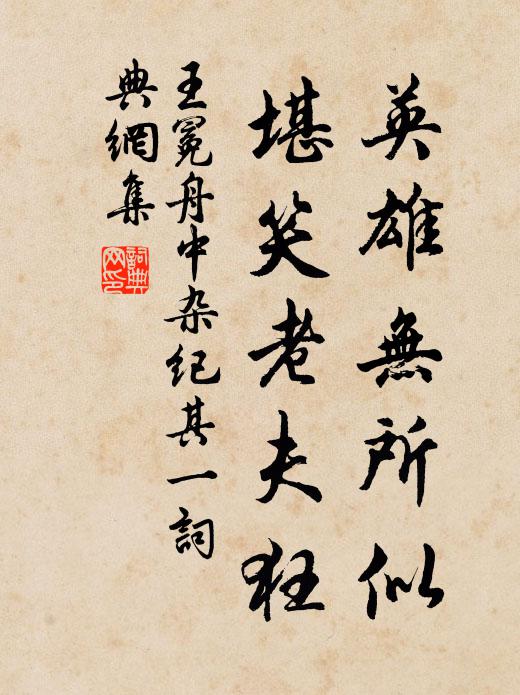 英雄無所似
堪笑老夫狂
王冕舟中杂纪其一詞
典網集
詞典
网印